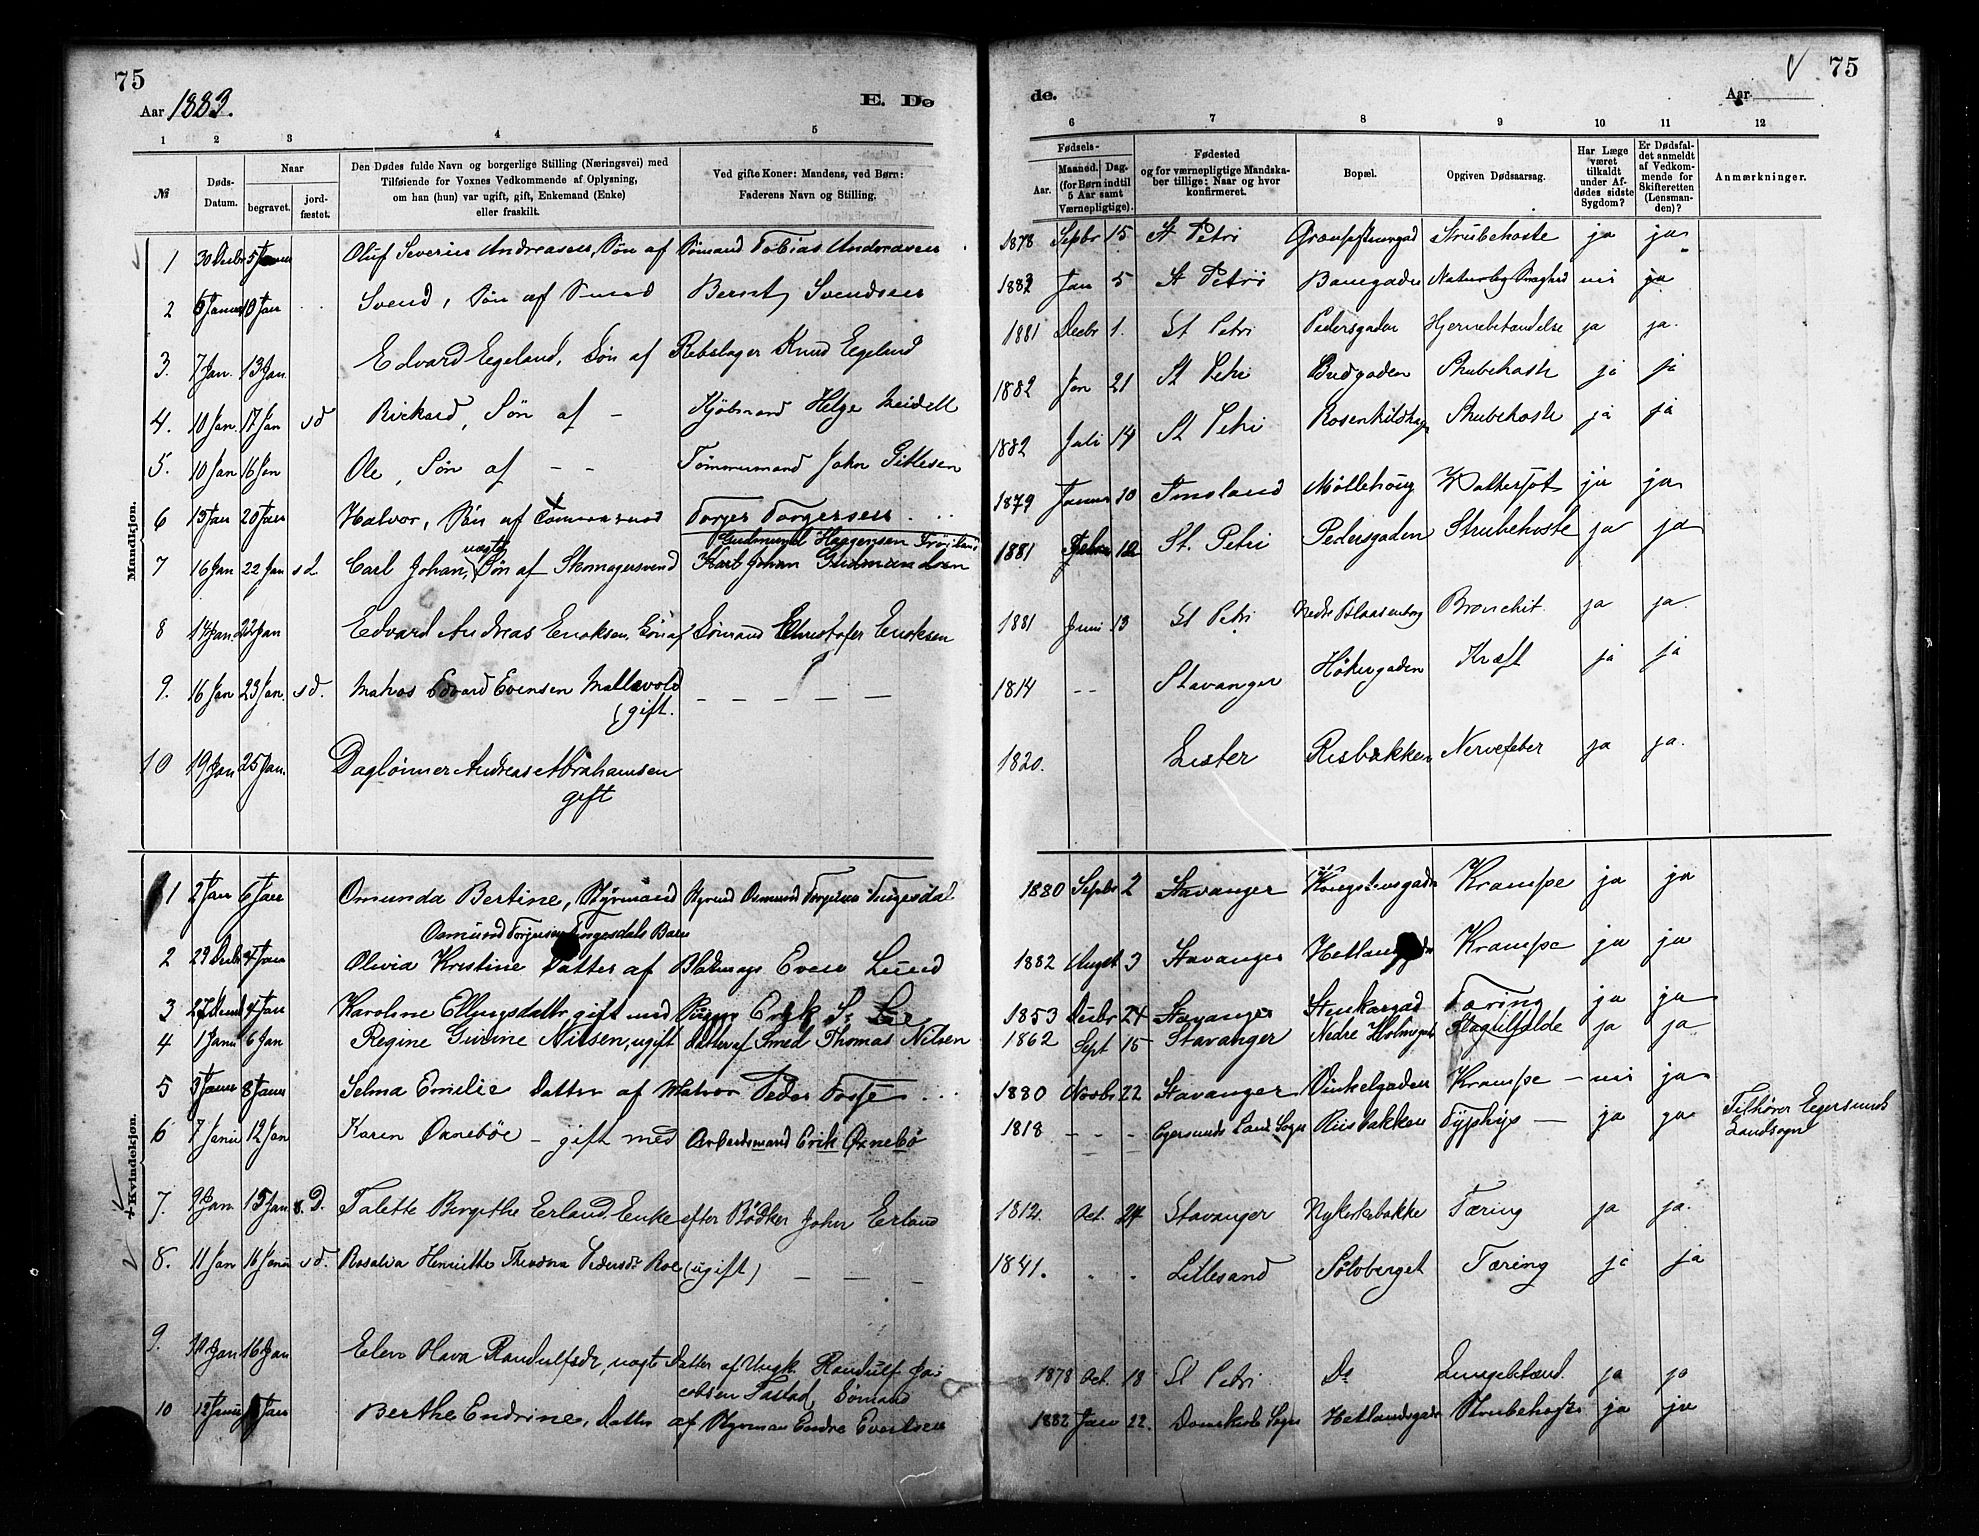 75
Aar 1883.
E. Dø
1 2 3 4 5
№
Døds-Datum.
Naar
begravet.
jord-fæstet.
Den Dødes fulde Navn og borgerlige Stilling (Næringsvei) med
Tilføiende for Voxnes Vedkommende af Oplysning,
om han (hun) var ugift, gift, Enkemand (Enke)
eller fraskilt.
Ved gifte Koner: Mandens, ved Børn:
Faderens Navn og Stilling.
Mandkjøn.
1 30 Decbr 5 Januar Oluf Severin Andreasen, Søn af Sømand Tobias Andreasen
2 Januar 10 Jan Svend, Søn af Smed Bernt Svendsen
3. 7 Jan. 13 Jan. Edvard Egeland, Søn af Rebslager Knud Egeland
4. 10 Jan. 17 Jan sd Rickard, Søn af – Kjøbmand Helge Meidell
5. 10 Jan 16 Jan Ole, Søn af – – Tømmermand John Gitlesen
6 15 Jan 20 Jan Halvor, Søn af Tømmermand Torger Torgersen
Gudmund Haagensen
7 16 Jan 22 Jan sd Carl Johan, uægte Søn af Skomagersvend Karl Johan Gudmundsen
8 17 Jan 22 Jan Edvard Andreas Enoksen, Søn af Sømand Christofer Enoksen
9. 16 Jan 23 Jan. sd. Matros Edvard Evensen Mallevold – – – – –
(gift.
10 19 Jan 25 Jan. Daglønner Andreas Abrahamsen
gift
Kvindekjøn.
1 2 Jan 6 Jan Omunda Bertine, Styrmand Styrmd Osmund Torgersen Tingesdal
Osmund Torgersen Tingesdals Barn
2 29 Decbr 4 Jan Olivia Kristine Datter af Even Lund
3 27 Decmb 4 Jan Karoline Ellingsdatter gift med Erik S. Lee
4 1 Janu 6 Jan Regine Gurine Nilsen, ugift Datter af Smed Thomas Nilsen
5 3 Januar 8 Januar Selma Emilie Datter af Matros Peder Fosse
6 7 Janu 12 Jan Karen Oxnebøe – gift med Arbeidsmand Erik Oxnebø
7. 9 Jan 15 Jan s. D. Talette Bergithe Erland, Enke efter Bødker John Erland
8. 11 Jan 16 Janu sd. Rosalva Henriette Theodora Pedersdr Roe (ugift) – – –
9. 10 Jan 16 Jan Elen Olava Randulfsdr, uægte Datter af Ungk. Randulf Ja-
cobsen Tastad, Sømand
10 12 Janu Jan Berthe Endrine, Datter af Styrman Endre Evertsen
75
de.
Aar
6 7 8 9 10 11 12
Fødsels-
Aar.
Maaned. Dag.
(for Børn indtil
5 Aar samt
Værnepligtige).
Fødested
og for værnepligtige Mandska-
ber tillige: Naar og hvor
konfirmeret.
Bopæl.
Opgiven Dødsaarsag.
Har Læge
været
tilkaldt
under Af-
dødes sidste
Sygdom?
Er Dødsfal-
det anmeldt
af Vedkom-
mende for
Skifteretten
(Lensman-
den)?
Anmærkninger.
1878 Sepbr 15 St Petri Strubehoste ja ja
1883 Jan 5 St Petri Banegaden Naturlig Svaghed nei ja
1881 Decbr 1. St Petri Pedersgaden Hjernebetændelse ja ja.
1882 Jan 21 St Petri Strubehoste ja ja
1882 Juli 14 St Petri Rosenkildehagen Strubehoste ja ja
1879 Januar 10 Imsland Møllehoug ja ja
1881 12 St. Petri Pedersgaden Strubehoste ja ja
1881 Juni 13 St Petri Nedre Blaasenborg Bronchit. ja ja.
1814 – – Stavanger Høkergaden Kræft ja ja
1820. Lister Risbakken Nervefeber ja ja.
1880 Sepbr 2 Stavanger Kongstensgaden Krampe ja ja
1882 August 3 Stavanger Krampe ja ja
1853 Decbr 24 Stavanger Stenkargad Tæring ja ja
1862 Sept 15 Stavanger Nedre Holmegade Slagtilfælde ja ja
1880 Novbr 22 Stavanger Vinkelgaden Krampe – nei ja
1818 – – – Egersunds Land Sogn Risbakken Typhys – ja ja Tilhører Egersunds
Landsogn
1812. Oct. 24 Stavanger Nykirkebakke Tæring ja ja.
1841. Lillesand Sølvberget Tæring ja ja
1878 Oct. 18 St Petri Do Lungebetænd. ja ja
1882 Jan 22. Domkirke Sogn Hetlandsgaden Strubehoste ja ja